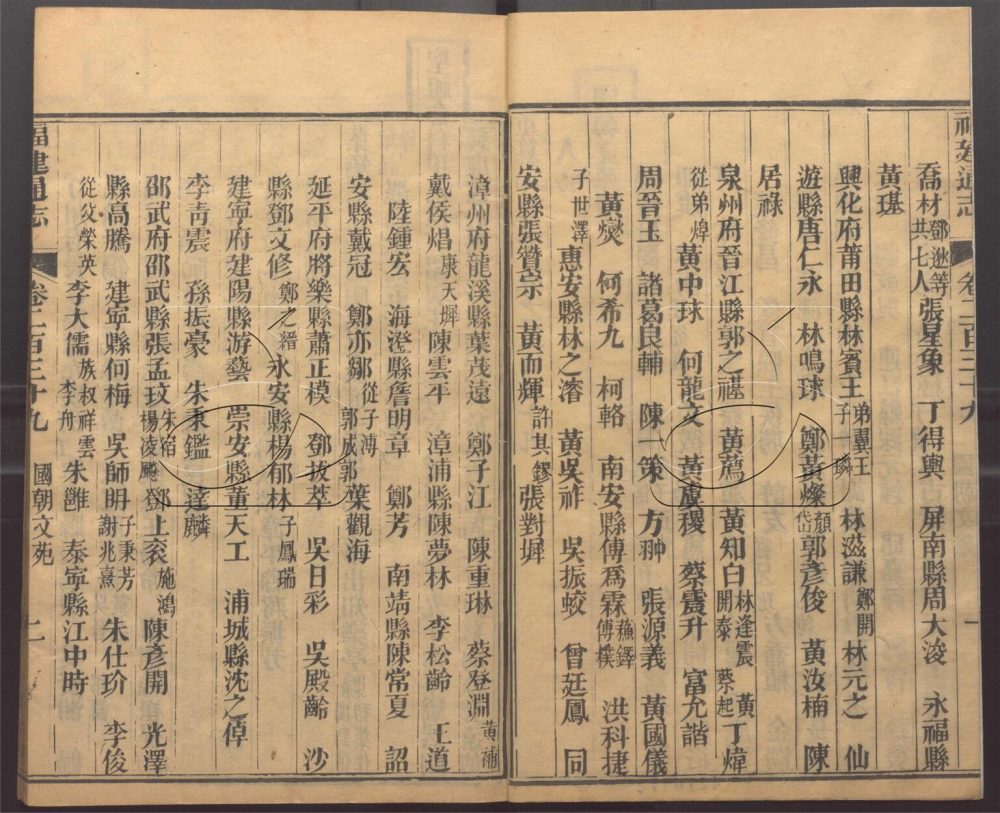 福建通志 卷二百三十九 一
喬材鄧逖等共七人 張星象 丁得興 屏南縣周大浚 永福縣
黃璂
興化府莆田縣林賓王弟翼王子璘 林滋謙鄭開 林元之 仙
遊縣唐仁永 林鳴球 鄭黃燦顏岱 郭彥俊 黃汝楠 陳
居祿
泉州府晉江縣郭之禥 黃蔿 黃知白林逢震黃開泰蔡起 丁煒
從弟煒 黃中球 何龍文 黃虞稷 蔡震升 富允諧
周晉玉 諸葛良輔 陳一策 方翀 張源義 黃國儀
黃爕 何希九 柯輅 南安縣傅爲霖蘓鐸傅樸 洪科捷
子世澤 惠安縣林之濬 黃吳祚 吳振蛟 曾廷鳳 同
安縣張贊宗 黃而輝許其鏐 張對墀
漳州府龍溪縣葉茂遠 鄭子江 陳重琳 蔡登淵黃補
戴侯焻康天墀 陳雲平 漳浦縣陳夢林 李松齡 王道
陸鍾宏 海澄縣詹明章 鄭芳 南靖縣陳常夏 詔
安縣戴冠 鄭亦鄒從子溥郭成郭 葉觀海
延平府將樂縣蕭正模 鄧拔萃 吳日彩 吳殿齡 沙
縣鄧文修鄭之縉 永安縣楊郁林子鳳瑞
建寧府建陽縣游藝 崇安縣董天工 浦城縣沈之偉
李青震 孫振豪 朱秉鑑 達麟
邵武府邵武縣張孟玟朱宿楊凌颷 鄧上衮施鴻 陳彥開 光澤
縣高騰 建寧縣何梅 吳師明子秉芳謝兆熹 朱仕玠 李俊
從父榮英 李大儒族叔祥雲李舟 朱雝 泰寧縣江中時
福建通志 卷二百三十九 國朝文苑 二